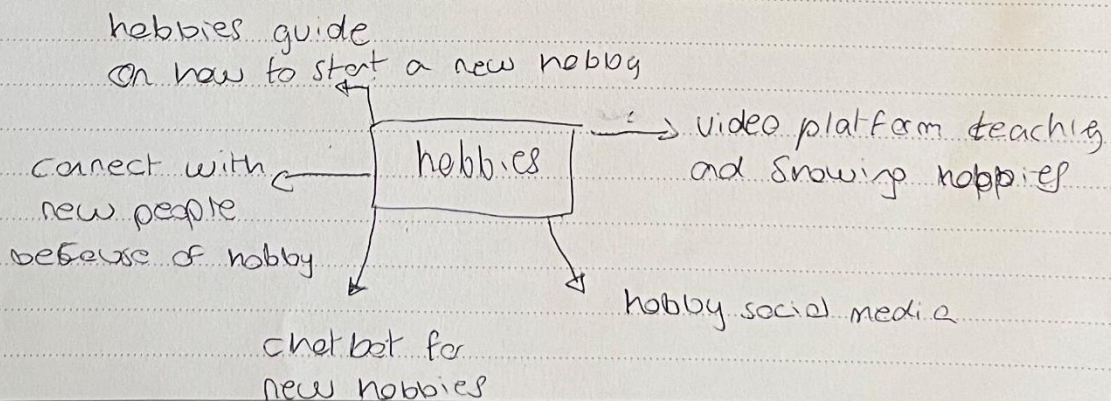 hobbies guide
on how to start a new hobby
hobbies
video platform teaching
and showing hobbies
connect with
new people
because of hobby
hobby social media
chatbot for
new hobbies